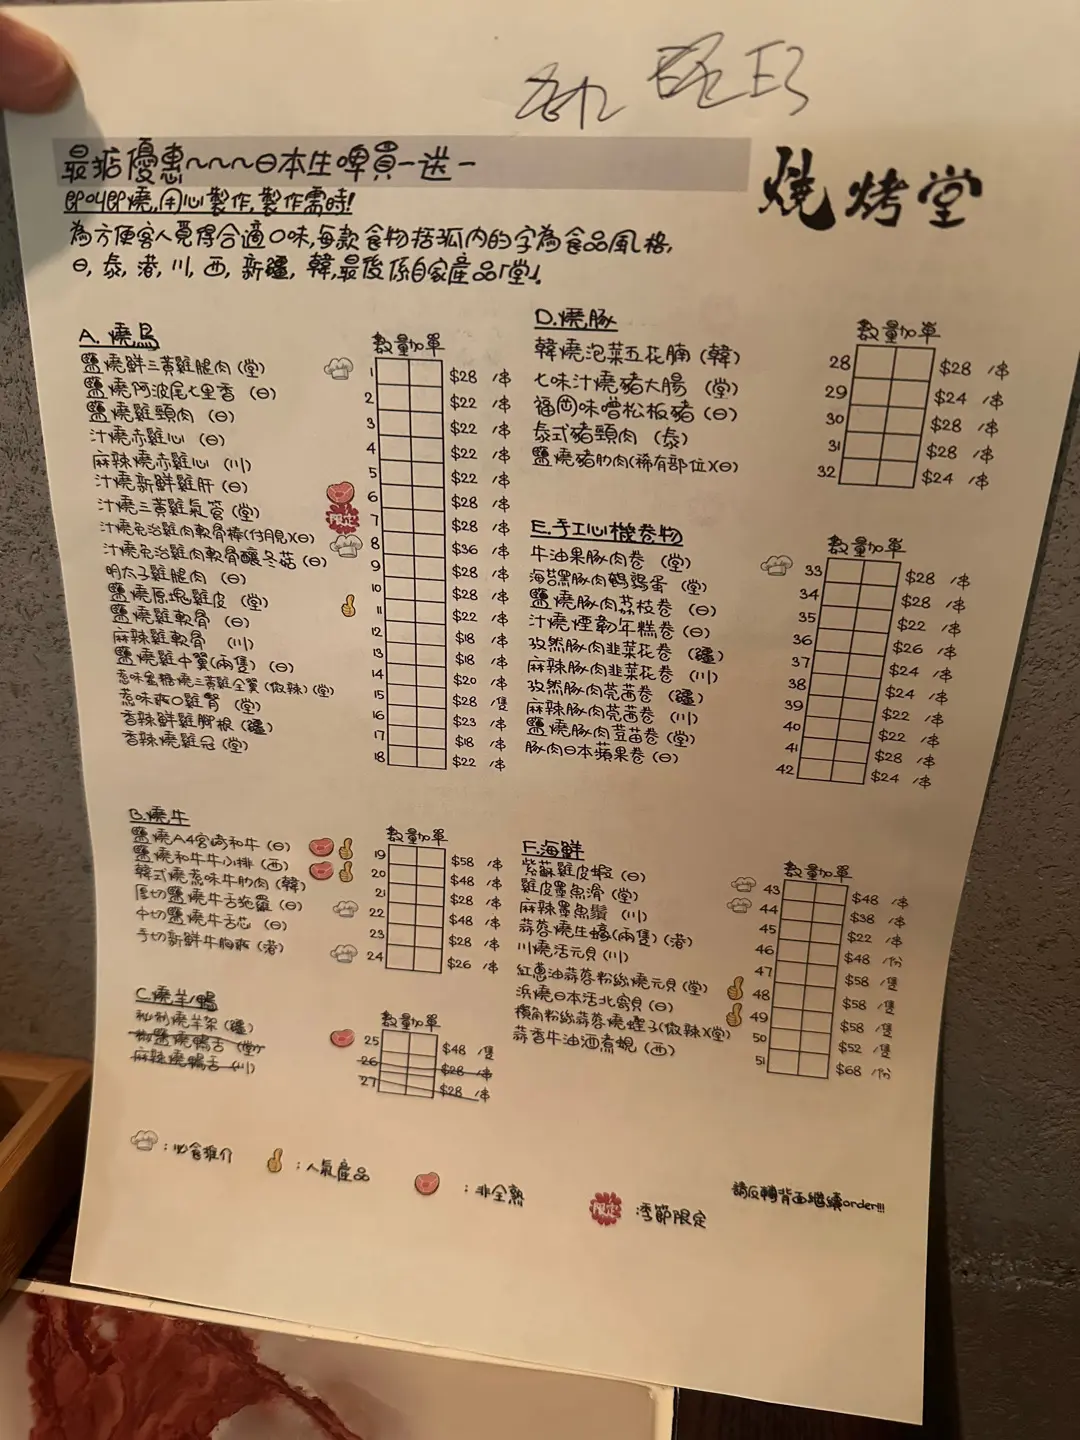 最新優惠~~~日本生啤買一送一
燒烤堂
即叫即燒,用心製作,製作需時!
為方便客人覓得合適口味,每款食物括弧內的字為食品風格,
日,泰,港,川,西,新疆,韓,最後係自家產品「堂」。
A. 燒鳥
數量加單
鹽燒鮮三黃雞腿肉(堂) 1 $28 /串
鹽燒阿波尾七里香(日) 2 $22 /串
鹽燒雞頸肉(日) 3 $22 /串
汁燒赤雞心(日) 4 $22 /串
麻辣燒赤雞心(川) 5 $22 /串
汁燒新鮮雞肝(日) 6 $28 /串
汁燒三黃雞氣管(堂) 限定 7 $28 /串
汁燒免治雞肉軟骨棒(付月見)(日) 8 $36 /串
汁燒免治雞肉軟骨釀冬菇(日) 9 $28 /串
明太子雞腿肉(日) 10 $28 /串
鹽燒原塊雞皮(堂) 11 $22 /串
鹽燒雞軟骨(日) 12 $18 /串
麻辣雞軟骨(川) 13 $18 /串
鹽燒雞中翼(兩隻)(日) 14 $20 /串
惹味蜜糖燒三黃雞全翼(微辣)(堂) 15 $28 /隻
惹味爽口雞腎(堂) 16 $23 /串
香辣鮮雞腳根(疆) 17 $18 /串
香辣燒雞冠(堂) 18 $22 /串
B.燒牛
數量加單
鹽燒A4宮崎和牛(日) 19 $58 /串
鹽燒和牛牛小排(西) 20 $48 /串
韓式燒惹味牛肋肉(韓) 21 $28 /串
厚切鹽燒牛舌拖羅(日) 22 $48 /串
中切鹽燒牛舌芯(日) 23 $28 /串
手切新鮮牛胸爽(港) 24 $26 /串
C.燒羊/鴨
數量加單
秘制燒羊架(疆) 25 $48 /隻
鹽燒鴨舌(堂) 26 $28 /串
麻辣燒鴨舌(川) 27 $28 /串
D.燒豚
數量加單
韓燒泡菜五花腩(韓) 28 $28 /串
七味汁燒豬大腸(堂) 29 $24 /串
福岡味噌松板豬(日) 30 $28 /串
泰式豬頸肉(泰) 31 $28 /串
鹽燒豬肋肉(稀有部位)(日) 32 $24 /串
E.手工心機卷物
數量加單
牛油果豚肉卷(堂) 33 $28 /串
海苔黑豚肉鵪鶉蛋(堂) 34 $28 /串
鹽燒豚肉荔枝卷(日) 35 $22 /串
汁燒煙韌年糕卷(日) 36 $26 /串
孜然豚肉韭菜花卷(疆) 37 $24 /串
麻辣豚肉韭菜花卷(川) 38 $24 /串
孜然豚肉芫茜卷(疆) 39 $22 /串
麻辣豚肉芫茜卷(川) 40 $22 /串
鹽燒豚肉荳苗卷(堂) 41 $28 /串
豚肉日本蘋果卷(日) 42 $24 /串
F.海鮮
數量加單
紫蘇雞皮蝦(日) 43 $48 /串
雞皮墨魚滑(堂) 44 $38 /串
麻辣墨魚鬚(川) 45 $22 /串
蒜蓉燒生蠔(兩隻)(港) 46 $48 /份
川燒活元貝(川) 47 $58 /隻
紅蔥油蒜蓉粉絲燒元貝(堂) 48 $58 /隻
浜燒日本活北寄貝(日) 49 $58 /隻
欖角粉絲蒜蓉燒蟶子(微辣)(堂) 50 $52 /隻
蒜香牛油酒煮蜆(西) 51 $68 /份
:必食推介
:人氣產品
:非全熟
限定:季節限定
請反轉背面繼續order!!!